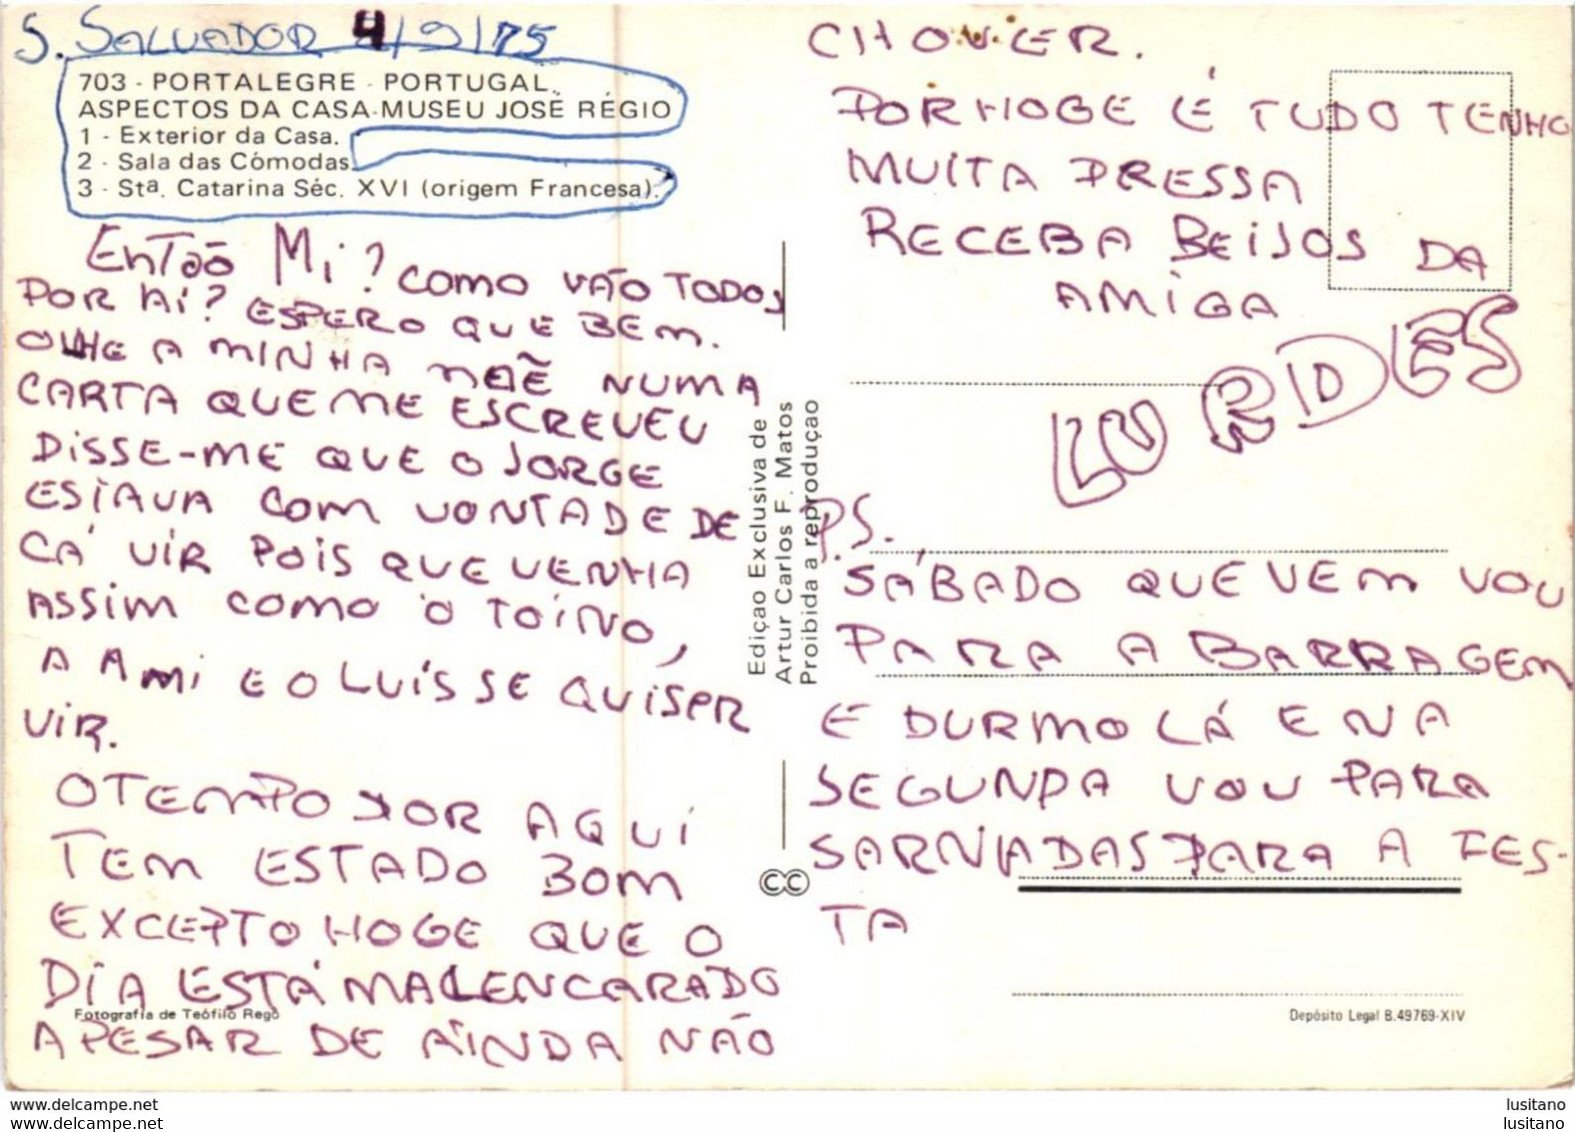 S. SALVADOR 4/9/75
703 - PORTALEGRE - PORTUGAL.
ASPECTOS DA CASA-MUSEU JOSÉ RÉGIO
1 - Exterior da Casa.
2 - Sala das Cómodas.
3 - Stª. Catarina Séc. XVI (origem Francesa).
ENTÃO MI? COMO VÃO TODOS
POR AI? ESPERO QUE BEM.
OLHE A MINHA MÃE NUMA
CARTA QUE ME ESCREVEU
DISSE-ME QUE O JORGE
ESTAVA COM VONTADE DE
CÁ VIR POIS QUE VENHA
ASSIM COMO O TOINO,
A AMI E O LUÍS SE QUISER
VIR.
O TEMPO POR AQUI
TEM ESTADO BOM
EXCEPTO HOGE QUE O
DIA ESTÁ MALENCARADO
APESAR DE AINDA NÃO
Fotografia de Teófilo Rego
Edição Exclusiva de
Artur Carlos F. Matos
Proibida a reprodução
CC
CHOVER.
POR HOGE É TUDO TENHO
MUITA PRESSA
RECEBA BEIJOS DA
AMIGA
LURDES
P.S.
SÁBADO QUE VEM VOU
PARA A BARRAGEM
E DURMO LÁ E NA
SEGUNDA VOU PARA
SARNADAS PARA A FES-
TA
Depósito Legal B.49769-XIV
lusitano
lusitano
www.delcampe.net
www.delcampe.net